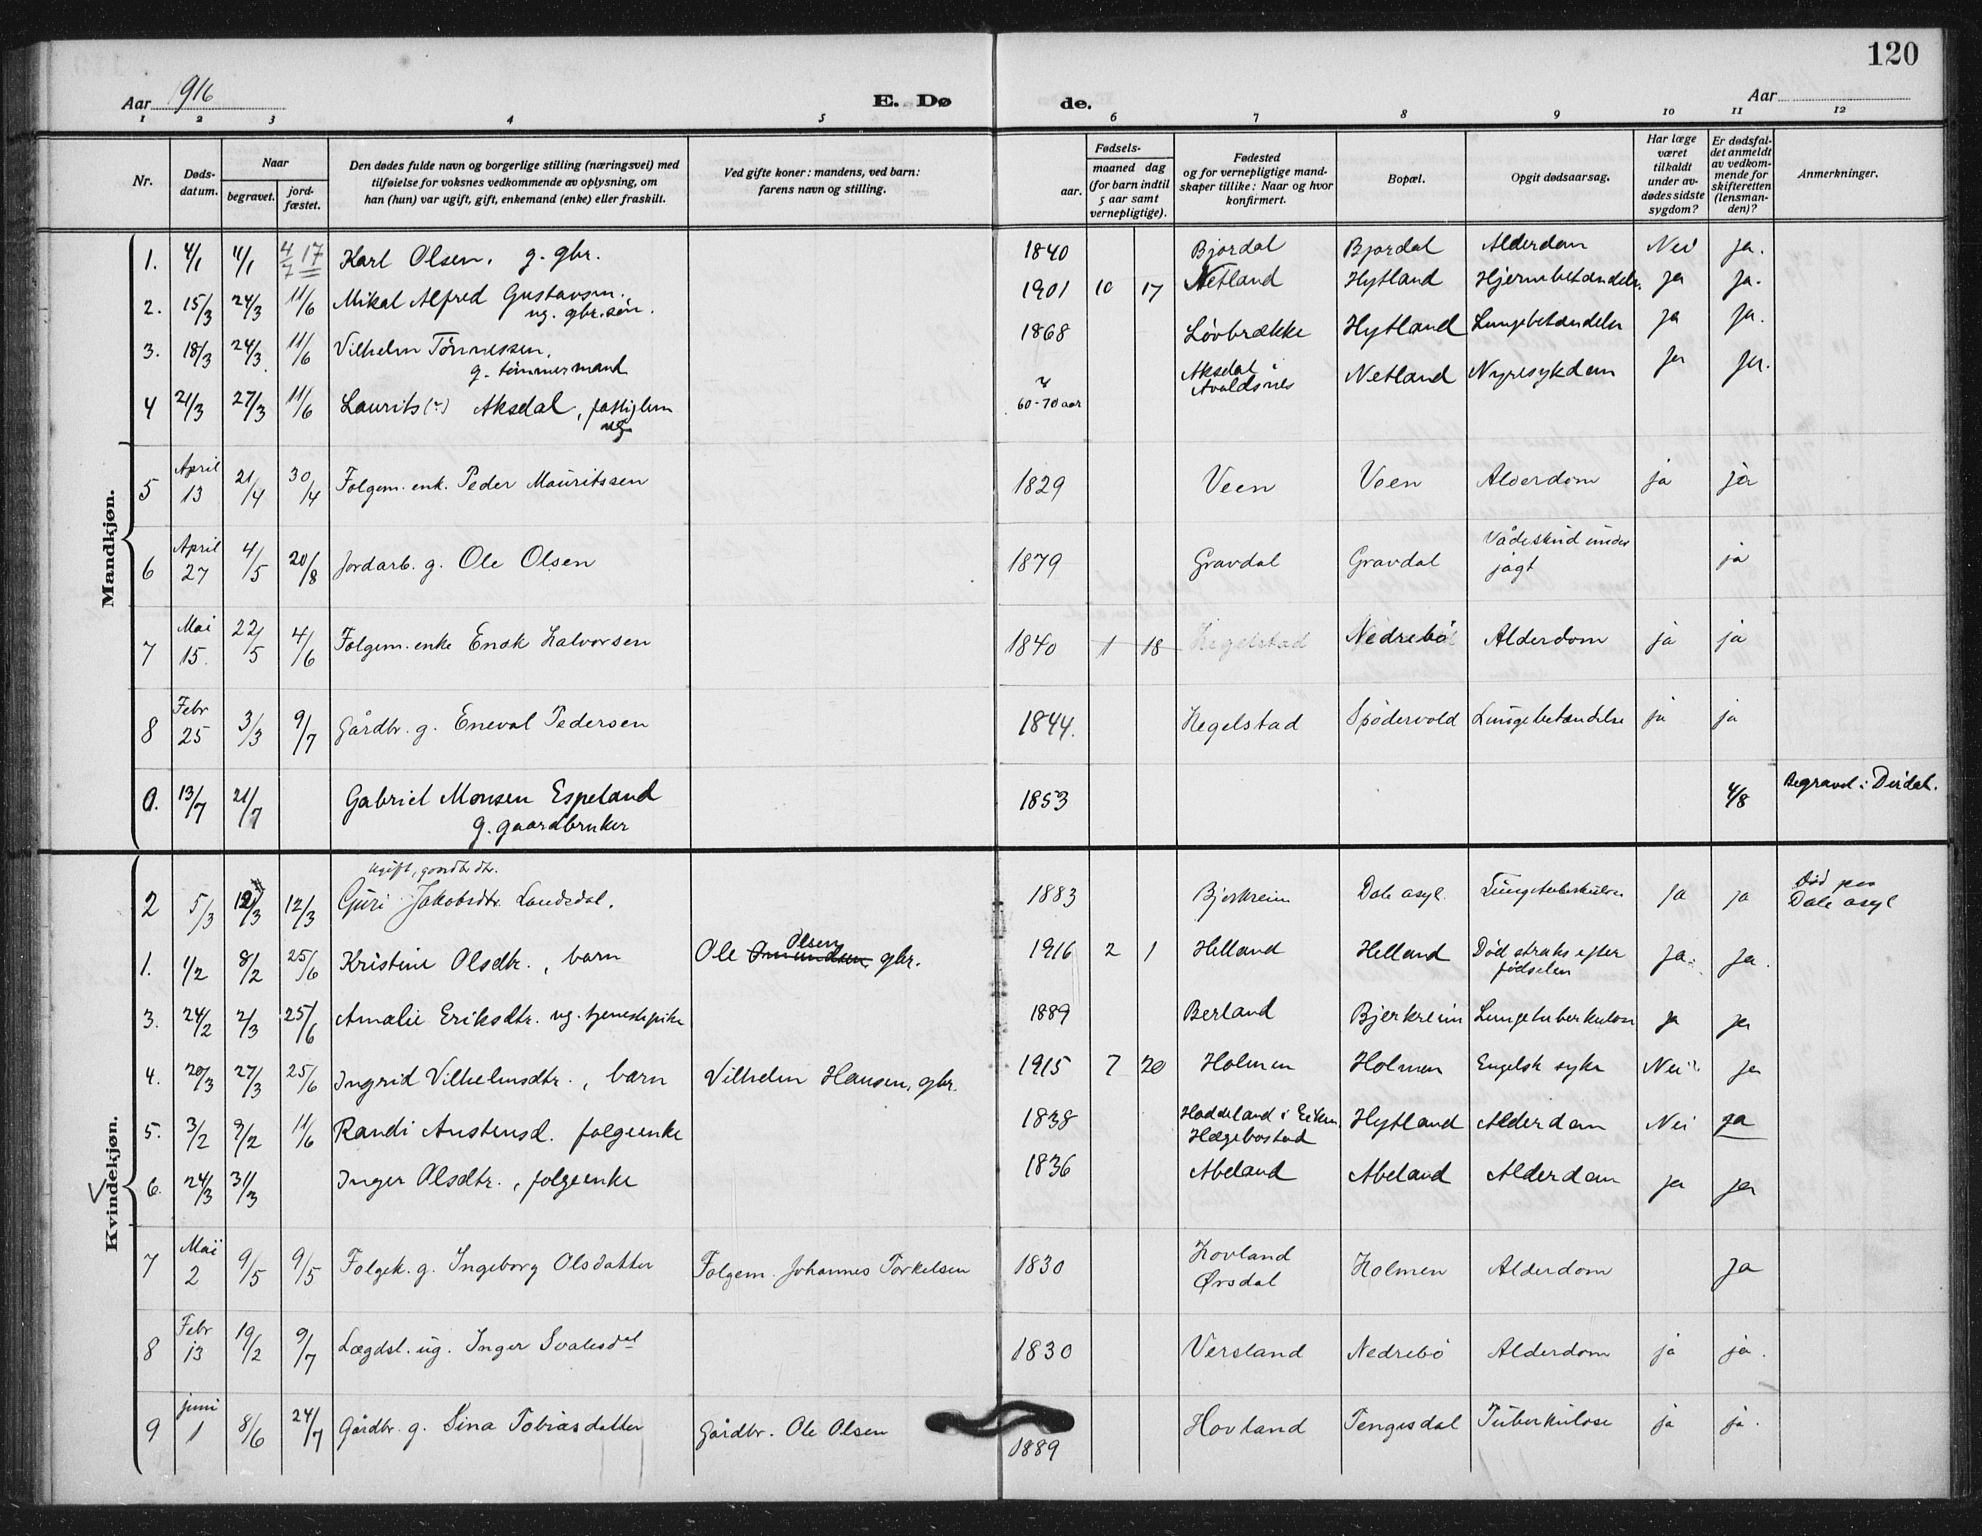 120
Aar 1916 E. Dø de. Aar
1 2 3 4 5 6 7 8 9 10 11 12
Nr. Døds-datum. Naar begravet. jord-fæstet. Den dødes fulde navn og borgerlige stilling (næringsvei) med tilføielse for voksnes vedkommende av oplysning, om han (hun) var ugift, gift, enkemand (enke) eller fraskilt. Ved gifte koner: mandens, ved barn: farens navn og stilling. Fødsels- aar. maaned dag (for barn indtil 5 aar samt vernepligtige). Fødested og for vernepligtige mandskaper tillike: Naar og hvor konfirmert. Bopæl. Opgit dødsaarsag. Har læge været tilkaldt under avdødes sidste sygdom? Er dødsfaldet anmeldt av vedkommende for skifteretten (lensmanden)? Anmerkninger.
Mandkjøn.
1. 4/1 11/1 4/7 17 Karl Olsen, g. gbr. 1840 Bjordal Bjordal Alderdom Nei ja.
2. 15/3 24/3 11/6 Mikal Alfred Gustavsen, ug. gbr.søn. 1901 10 17 Netland Hytland Hjernebetændelse ja ja.
3. 18/3 24/3 11/6 Vilhelm Tønnessen, g. tømmermand 1868 Løvbrække Hytland Lungebetændelse ja ja.
4 21/3 27/3 11/6 Laurits(?) Aksdal, fattiglem ug 60-70 aar Aksdal i Avaldsnes Netland Nyresykdom ja ja.
5 April 13 21/4 30/4 Folgem. enk. Peder Mauritssen 1829 Veen Veen Alderdom ja ja
6 April 27 4/5 20/8 Jordarb. g. Ole Olsen 1879 Gravdal Gravdal Vådeskud under jagt ja
7 Mai 15. 22/5 4/6 Folgem. enke Enok Halvorsen 1840 1 18 Hegelstad Nedrebø Alderdom ja ja
8 Febr 25 3/3 9/7 Gårdbr. g. Eneval Pedersen 1844. Hegelstad Spødervold Lungebetændelse ja ja
0. 13/7 21/7 Gabriel Monsen Espeland g. gaardbruker 1853 4/8 Begravd i Dirdal.
Kvindekjøn.
2 5/3 12/3 12/3 ugift, gaardbr.dtr. Guri Jakobsdtr. Landsdal. 1883 Bjerkreim Dale asyl. Lungetuberkulose ja ja Død paa Dale asyl
1. 1/2 8/2 25/6 Kristine Olsdtr., barn Ole Olsen gbr. 1916 2 1 Helland Helland Død straks efter fødselen ja. ja.
3. 24/2 2/3 25/6 Amalie Eriksdtr. ug. tjenestepike 1889 Berland Bjerkreim Lungetuberkulose ja ja
4. 20/3 27/3 25/6 Ingrid Vilhelmsdtr., barn Vilhelm Hansen, gbr. 1915 7 20 Holmen Holmen Engelsk syke Nei ja
5. 3/2 9/2 11/6 Randi Austensd. folgeenke 1838 Haddeland i Eiken, Hægebostad Hytland Alderdom Nei ja
6. 24/3 31/3 Inger Olsdtr., folgeenke 1836 Abeland Abeland Alderdom ja ja
7 Mai 2 9/5 9/5 Folgek. g. Ingeborg Olsdatter Folgem. Johannes Torkelsen 1830 Hovland Ørsdal Holmen Alderdom ja
8 Febr 13 19/2 9/7 Lægdsl. ug. Inger Svalesdal 1830 Versland Nedrebø Alderdom ja ja.
9 juni 1 8/6 24/7 Gårdbr. g. Sina Tobiasdatter Gårdbr. Ole Olsen 1889 Hovland Tengesdal Tuberkulose ja ja.